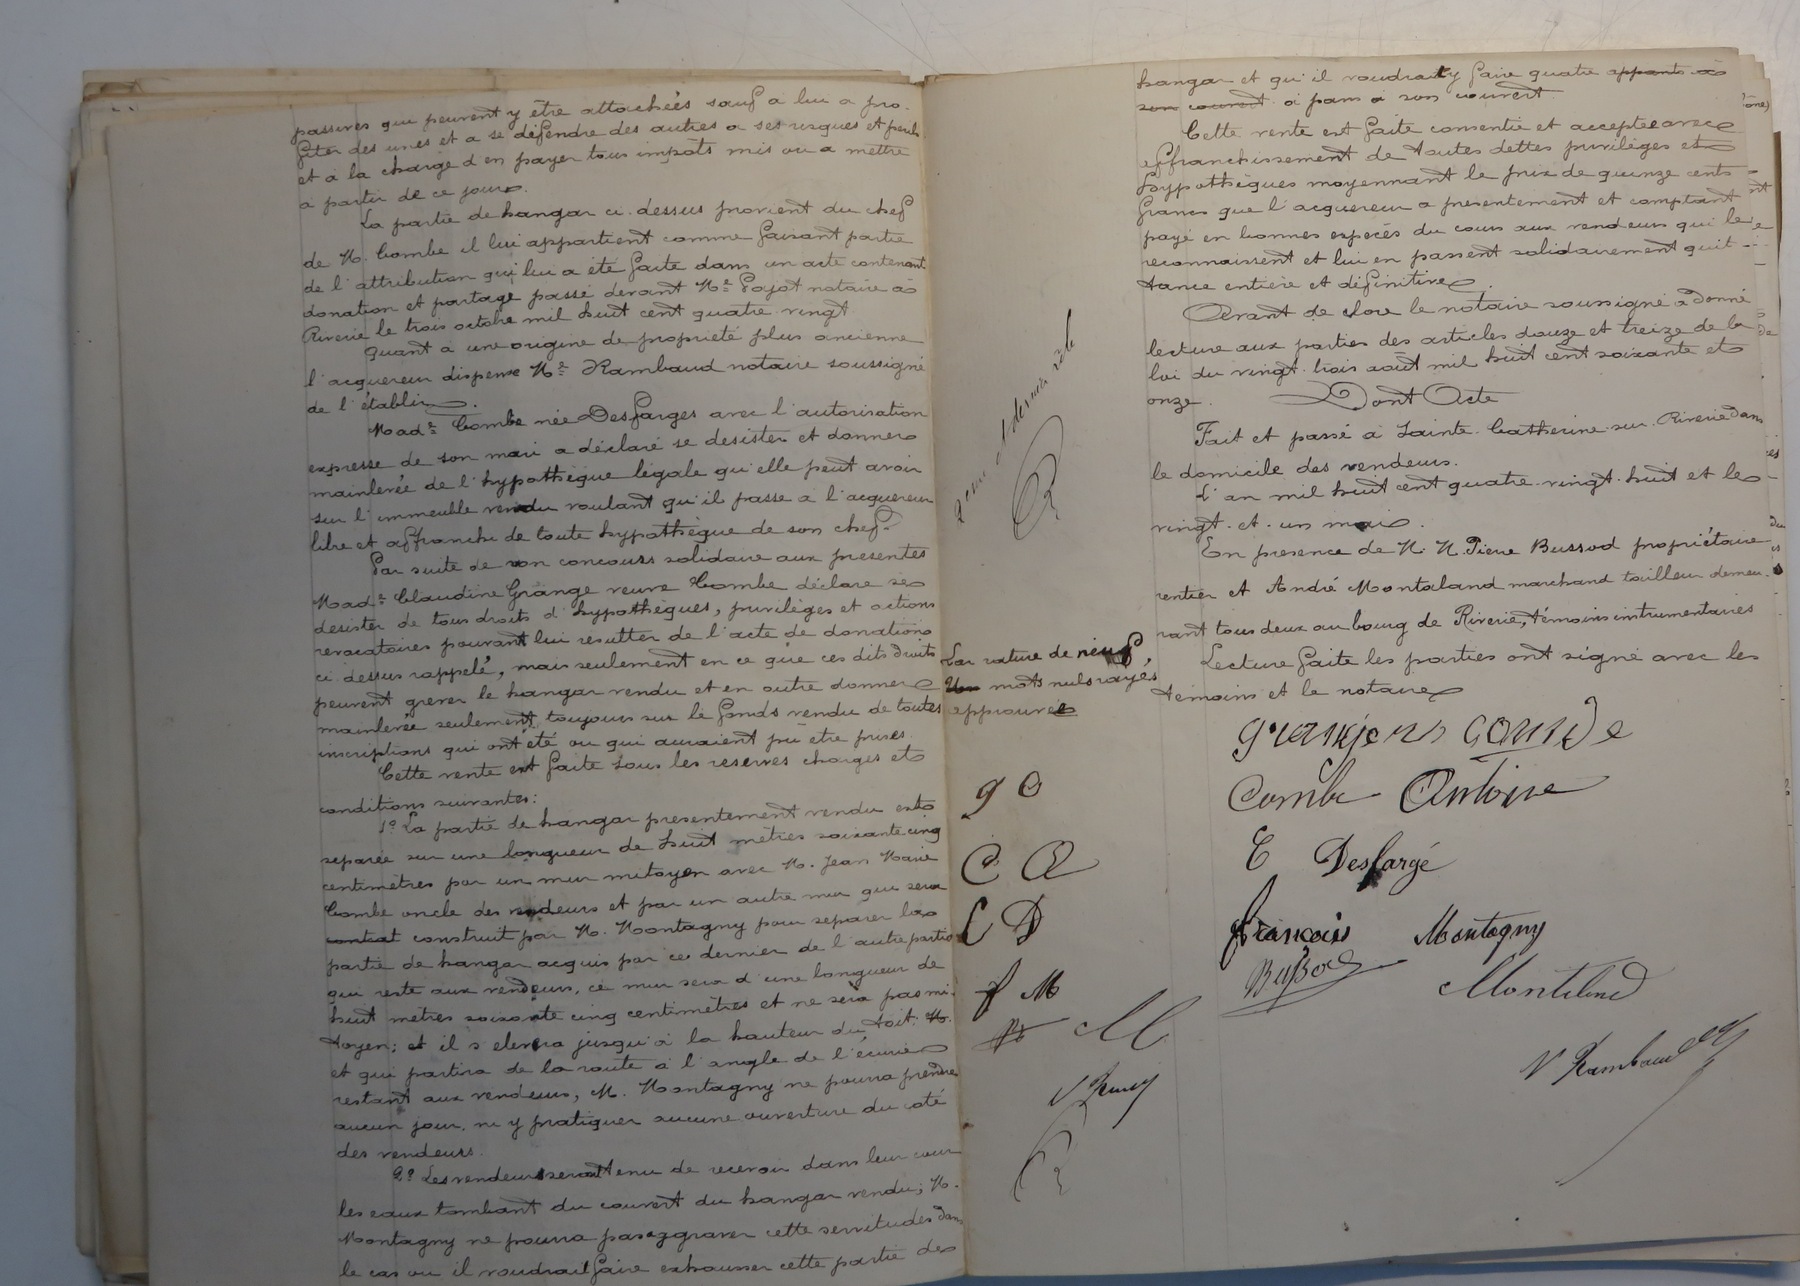 passives qui peuvent y être attachées sauf à lui a pro-
fiter des unes et a se défendre des autres a ses risques et perils
et à la charge d'en payer tous impôts mis ou a mettre
a partir de ce jour.
La partie de hangar ci-dessus provient du chef
de M. Combe il lui appartient comme faisant partie
de l'attribution qui lui a été faite dans un acte contenant
donation et partage passé devant Me Goyot notaire a
Riverie le trois octobre mil huit cent quatre-vingt
Quant à une origine de propriété plus ancienne
l'acquereur dispense Me Rambaud notaire soussigné
de l'établir.
Made Combe née Desfarges avec l'autorisation
expresse de son mari a déclaré se desister et donner
mainlevée de l'hypothèque légale qu'elle peut avoir
sur l'immeuble vendu voulant qu'il passe à l'acquereur
libre et affranchi de toute hypothèque de son chef.
Par suite de son concours solidaire aux presentes
Made Claudine Grange veuve Combe déclare se
desister de tous droits d'hypothèques, privilèges et actions
revocatoires pouvant lui resulter de l'acte de donation
ci-dessus rappelé, mais seulement en ce que ces dits droits
peuvent grever le hangar vendu et en outre donner
mainlevée seulement, toujours sur le fonds vendu de toutes
inscriptions qui ont été ou qui auraient pu etre prises.
Cette vente est faite sous les reserves charges et
conditions suivantes:
1o La partie de hangar presentement vendu est
separée sur une longueur de huit mètres soixante cinq
centimètres par un mur mitoyen avec M. Jean Marie
Combe oncle des vendeurs et par un autre mur qui sera
contrat construit par M. Montagny pour separer la
partie de hangar acquis par ce dernier de l'autre partie
qui reste aux vendeurs, ce mur sera d'une longueur de
huit mètres soixante cinq centimètres et ne sera pas mi-
toyen; et il s'elevera jusqu'à la hauteur du toit. M.
et qui partira de la route à l'angle de l'écurie
restant aux vendeurs, M. Montagny ne pourra prendre
aucun jour, ni y pratiquer aucune ouverture du coté
des vendeurs.
2o Les vendeurs seront tenu de recevoir dans leur cour
les eaux tombant du couvert du hangar vendu; M.
Montagny ne pourra pas aggraver cette servitudes dans
le cas ou il voudrait faire exhausser cette partie de
hangar et qu'il voudrait y faire quatre appants à
son couvert a pans a son couvert.
Cette vente est faite consentie et acceptee avec
affranchissement de toutes dettes privilèges et
hypothèques moyennant le prix de quinze cents
francs que l'acquereur a presentement et comptant
payé en bonnes espèces du cours aux vendeurs qui le
reconnaissent et lui en passent solidairement quit-
tance entière et définitive.
Avant de clore le notaire soussigné a donné
lecture aux parties des articles douze et treize de la
loi du vingt-trois août mil huit cent soixante et
onze.
Dont Acte
Fait et passé à Sainte-Catherine-sur-Riverie dans
le domicile des vendeurs.
L'an mil huit cent quatre-vingt-huit et le
vingt-et-un mai.
En presence de M. M. Pierre Bussod propriétaire
rentier et André Montaland marchand tailleur demeu-
rant tous deux au bourg de Riverie, témoins instrumentaires
Lecture faite les parties ont signé avec les
témoins et le notaire
2eme et dernier rôle
R
La rature de neuf
mots nuls rayés,
approuvée
g c
C A
C D
f M
M
Combe Antoine
C Desfargé
francois Montagny
Bussod
Montaland
V Rambaud